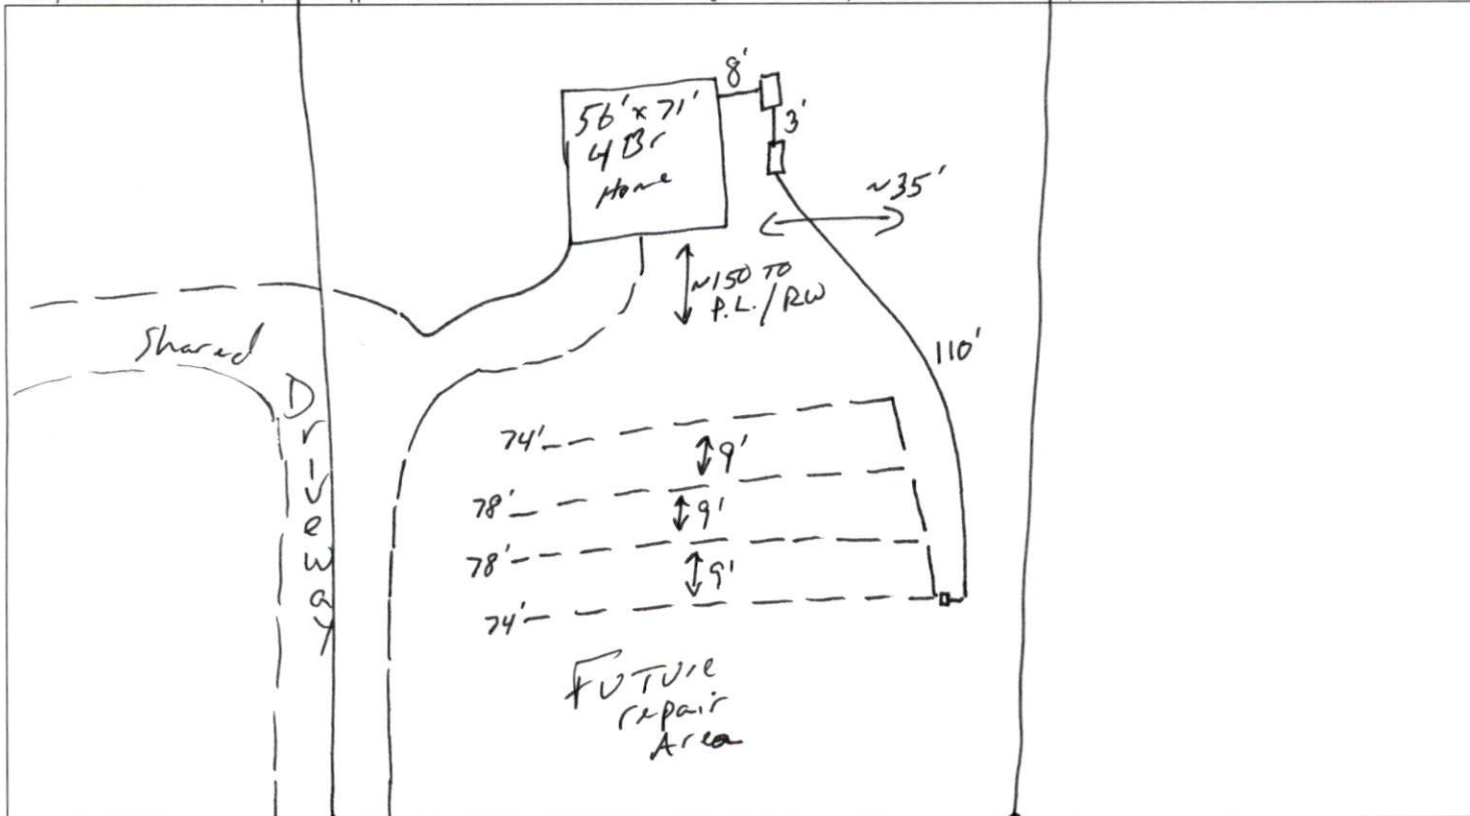 8'
56' x 71'
4 Br
Home
3'
~35'
~150 TO
P.L./RW
Shared
Driveway
110'
74'
9'
78'
9'
78'
9'
74'
FUTUre
repair
Area